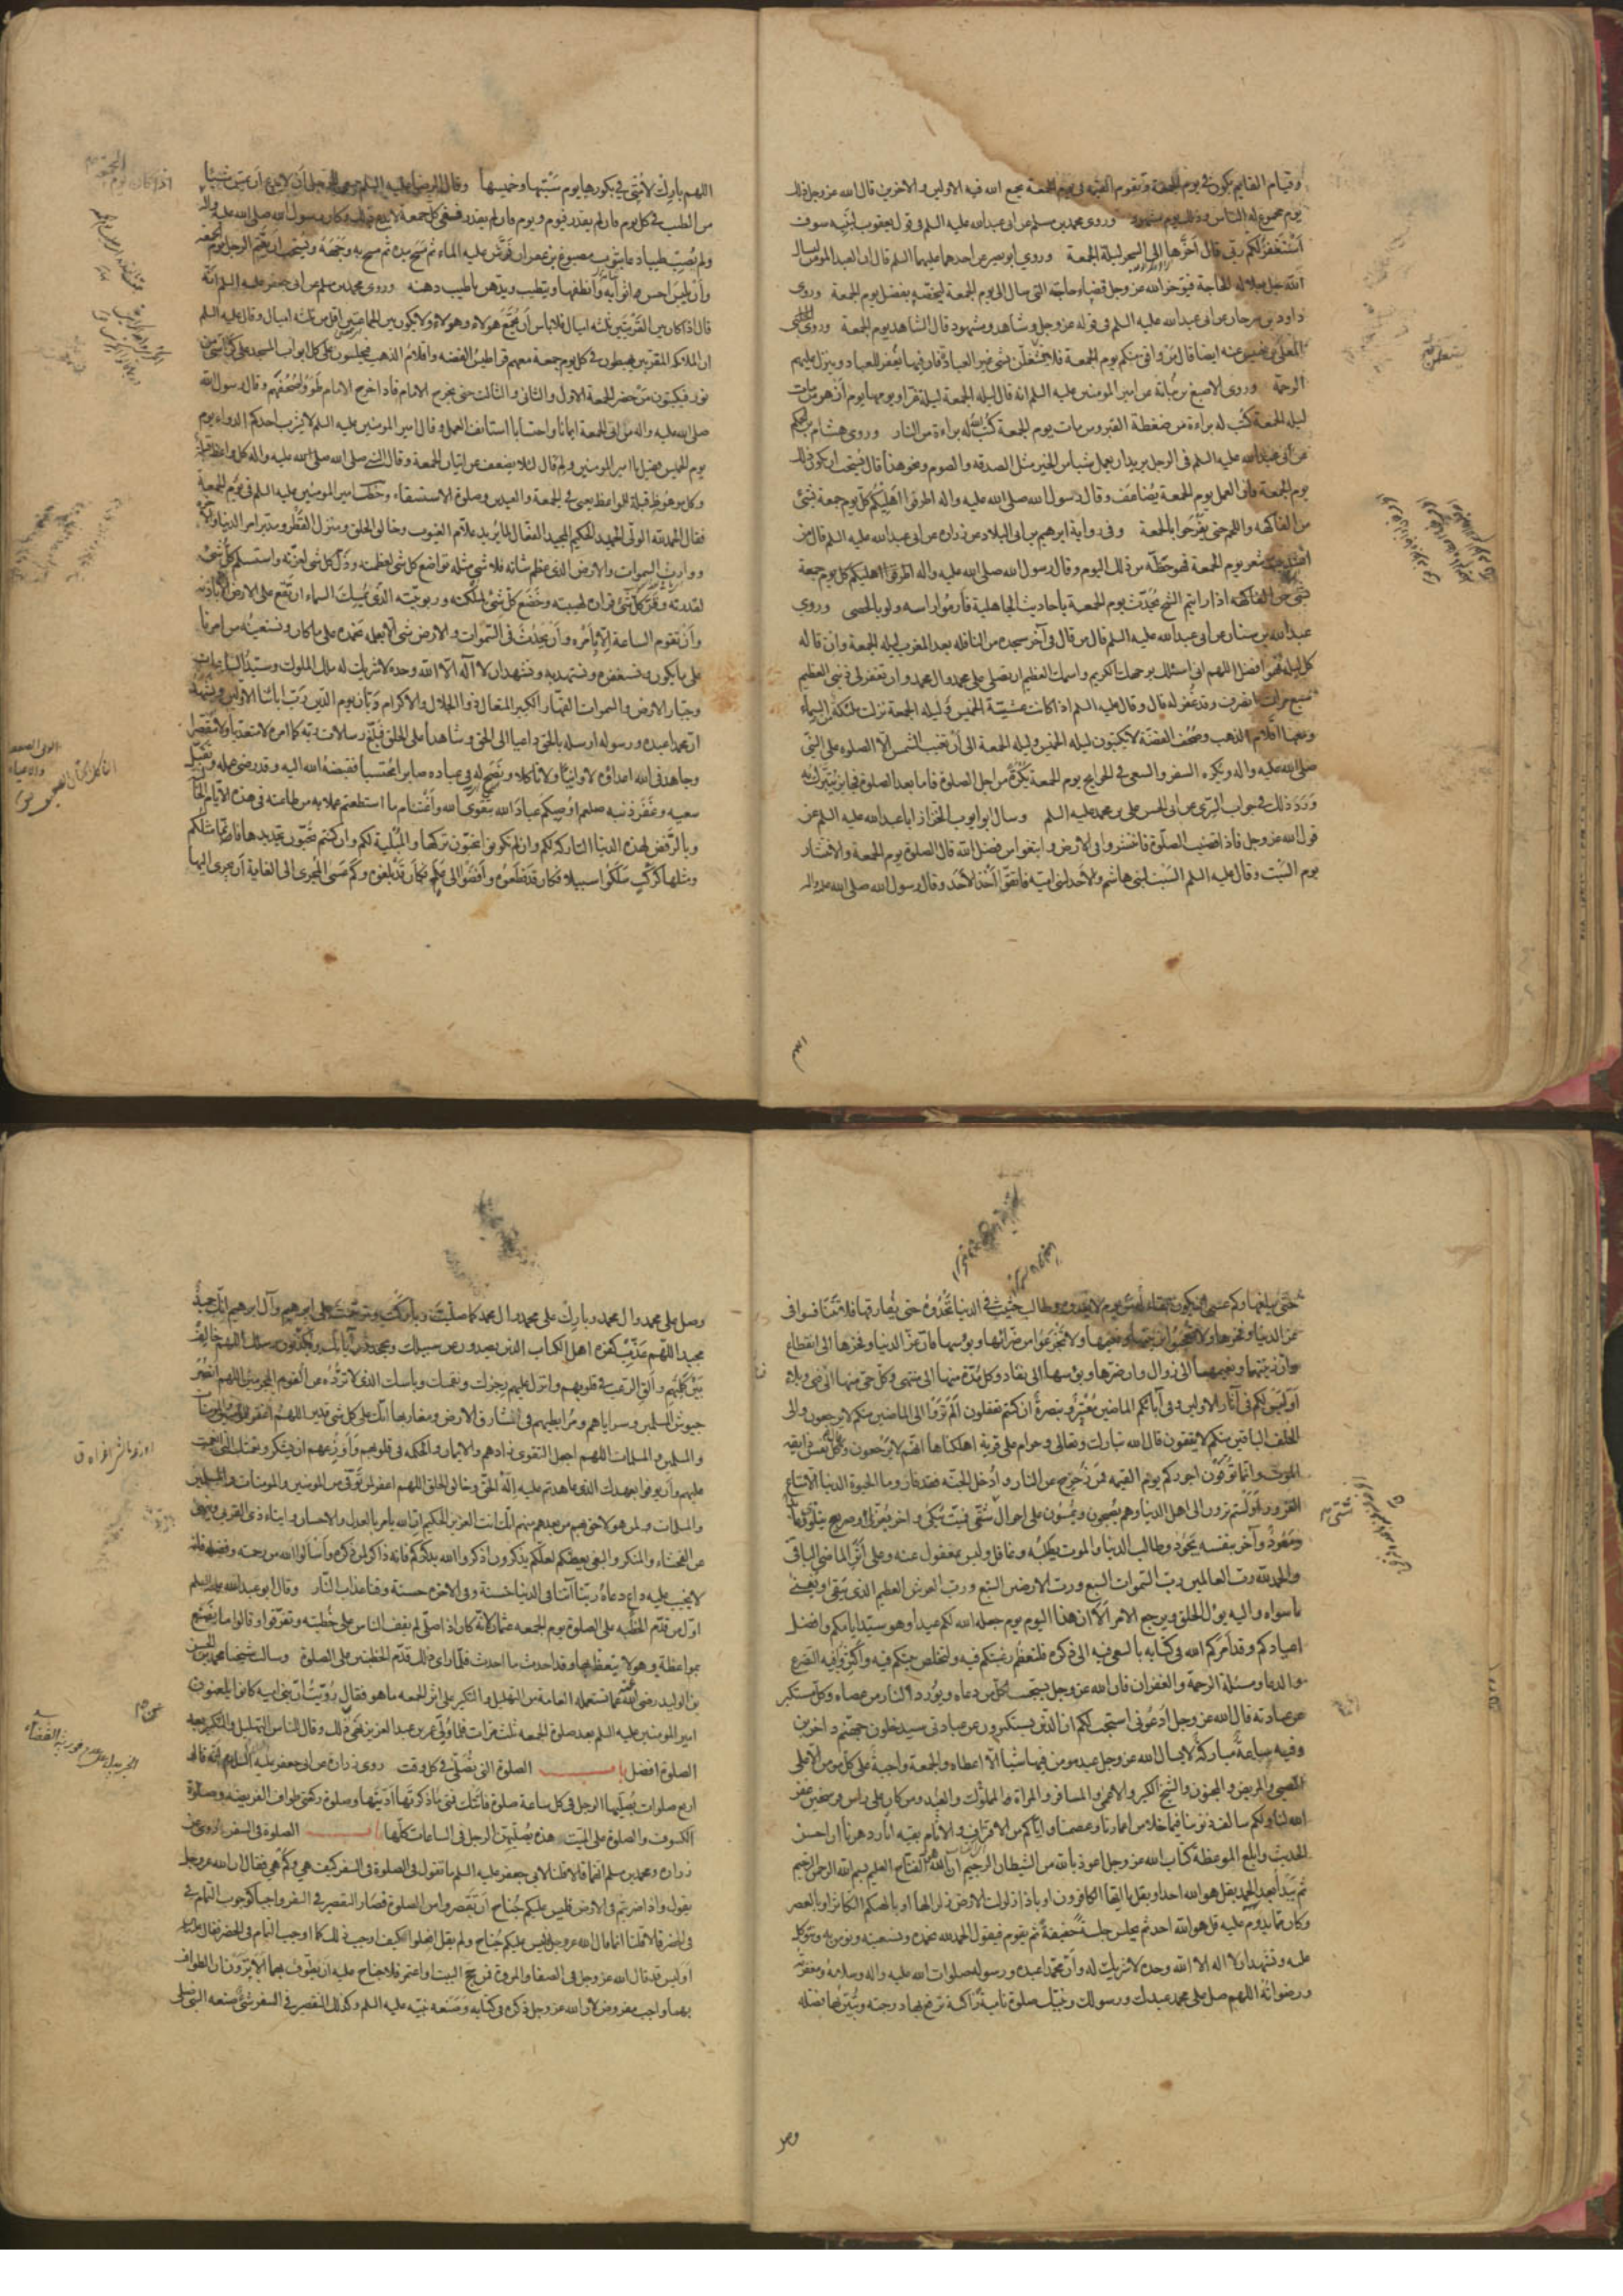 وقيام القايم يكون في يوم الجمعة وتقوم القيمة في يوم الجمعة يجمع الله فيه الاولين والاخرين قال الله عز وجل ذلك
يوم مجموع له الناس وذلك يوم مشهود وروى محمد بن مسلم عن ابي عبدالله عليه السلم في قول يعقوب لبنيه سوف
أستغفر لكم ربي قال أخرها الى السحر ليلة الجمعة وروى ابو بصير عن احدهما عليهما السلم قال ان العبد المومن ليسال
الله جل جلاله الحاجة فيؤخر الله عز وجل قضاء حاجته التي سال الى يوم الجمعة ليخصه بفضل يوم الجمعة وروى
داود بن سرحان عن ابي عبدالله عليه السلم في قوله عز وجل وشاهد ومشهود قال الشاهد يوم الجمعة وروى
المعلى بن خنيس عنه ايضا قال من وافق منكم يوم الجمعة فلا يشتغلن بشئ غير العبادة فان فيها يغفر للعباد وينزل عليهم
الرحمة وروى الاصبغ بن نباتة عن امير المومنين عليه السلم انه قال ليلة الجمعة ليلة غراء ويومها يوم ازهر من مات
ليلة الجمعة كتب له براءة من ضغطة القبر ومن مات يوم الجمعة كتب الله له براءة من النار وروى هشام بن الحكم
عن ابي عبدالله عليه السلم في الرجل يريد ان يعمل شيا من الخير مثل الصدقة والصوم ونحو هذا قال يستحب ان يكون ذلك
يوم الجمعة فان العمل يوم الجمعة يضاعف وقال رسول الله صلى الله عليه واله اطرفوا اهليكم كل يوم جمعة بشئ
من الفاكهة واللحم حتى يفرحوا بالجمعة وفي رواية ابرهيم بن ابي البلاد عن زرارة عن ابي عبدالله عليه السلم قال من
انشد بيت شعر يوم الجمعة فهو حظه من ذلك اليوم وقال رسول الله صلى الله عليه واله
اذا رايتم الشيخ يحدث يوم الجمعة باحاديث الجاهلية فارموا راسه ولو بالحصى وروى
عبدالله بن سنان عن ابي عبدالله عليه السلم قال من قال في آخر سجدة من النافلة بعد المغرب ليلة الجمعة وان قاله
كل ليلة فهو افضل اللهم اني اسئلك بوجهك الكريم واسمك العظيم ان تصلي على محمد وال محمد وان تغفر لي ذنبي العظيم
سبع مرات انصرف وقد غفر له قال وقال عليه السلم اذا كانت عشية الخميس وليلة الجمعة نزلت ملئكة من السماء
ومعها اقلام الذهب وصحف الفضة لا يكتبون ليلة الخميس وليلة الجمعة الى أن تغيب الشمس إلا الصلوة على النبي
صلى الله عليه واله ويكره السفر والسعي في الحوايج يوم الجمعة يكره من اجل الصلوة فاما بعد الصلوة فجايز يتبرك به
وَرَدَ ذلك في جواب السري عن ابي الحسن علي بن محمد عليه السلم وسال ابو ايوب الخزاز ابا عبدالله عليه السلم عن
قول الله عز وجل فاذا قضيت الصلوة فانتشروا في الارض وابتغوا من فضل الله قال الصلوة يوم الجمعة والانتشار
يوم السبت وقال عليه السلم السبت لبني هاشم والاحد لبني امية فاتقوا أخذ الاحد وقال رسول الله صلى الله عليه واله
اللهم بارك لأمتي في بكورها يوم سبتها وخميسها وقال الرضا عليه السلم ينبغي للرجل أن لا يدع أن يمس شيئا
من الطيب في كل يوم فان لم يقدر فيوم ويوم فان لم يقدر ففي كل جمعة لا يدع ذلك وكان رسول الله صلى الله عليه واله
ولم يُصِب طيبا دعا بثوب مصبوغ بزعفران فرش عليه الماء ثم مسح بيده ثم مسح به وجهه ويستحب ان يعتم الرجل يوم الجمعة
وأن يلبس احسن اثوابه وأنظفها ويتطيب ويدهن باطيب دهنه وروى محمد بن مسلم عن ابي جعفر عليه السلم انه
قال اذا كان بين القريتين ثلثة اميال فلا باس أن يجمع هولاء وهولاء ولا يكون بين الجماعتين اقل من ثلثة اميال وقال عليه السلم
ان الملائكة المقربين يهبطون في كل يوم جمعة معهم قراطيس الفضة واقلام الذهب فيجلسون على كل ابواب المسجد على كراسي من
نور فيكتبون من حضر الجمعة الاول والثاني والثالث حتى يخرج الامام فاذا خرج الامام طووا صحفهم وقال رسول الله
صلى الله عليه واله من اتى الجمعة ايمانا واحتسابا استأنف العمل وقال امير المومنين عليه السلم لا يشرب احدكم الدواء يوم
يوم الخميس فقيل يا امير المومنين ولم قال لئلا يضعف عن اتيان الجمعة وقال النبي صلى الله عليه واله كل واعظ قبلة
وكل موعوظ قبلة للواعظ يعني في الجمعة والعيدين وصلوة الاستسقاء وخطب امير المومنين عليه السلم في يوم الجمعة
فقال الحمدلله الولي الحميد الحكيم المجيد الفعال لما يريد علام الغيوب وخالق الخلق ومنزل القطر ومدبر امر الدنيا والاخرة
ووارث السموات والارض الذي عظم شانه فلا شئ مثله تواضع كل شئ لعظمته وذل كل شئ لعزته واستسلم كل شئ
لقدرته وقر كل شئ قراره لهيبته وخضع كل شئ لملكته وربوبيته الذي يمسك السماء ان تقع على الارض الا باذنه
وأن تقوم الساعة الا بأمره وأن يحدث في السموات والارض شئ الا بعلمه نحمده على ما كان ونستعينه من امرنا
على ما يكون ونستغفره ونستهديه ونشهد ان لا اله الا الله وحده لا شريك له ملك الملوك وسيد السادات
وجبار الارض والسموات القهار الكبير المتعال ذو الجلال والاكرام ديان يوم الدين رب ابائنا الاولين ونشهد
ان محمدا عبده ورسوله ارسله بالحق داعيا الى الحق وشاهدا على الخلق فبلغ رسالات ربه كما امره لا متعديا ولا مقصرا
وجاهد في الله اعداؤه لا وانيا ولا ناكلا ونصح له في عباده صابرا محتسبا فقبضه الله اليه وقد رضي عمله وتقبل
سعيه وغفر ذنبه صلعم اوصيكم عباد الله بتقوى الله واغتنام ما استطعتم عملا به من طاعته في هذه الايام الخالية
وبالرفض لهذه الدنيا التاركة لكم وان لم تكونوا تحبون تركها والمبلية لكم وان كنتم تحبون تجديدها فانما مثلكم
ومثلها كركب سلكوا سبيلا فكان قد قطعوه وأفضوا الى علم فكان قد بلغوه وكم عسى المجرى الى الغاية أن يجرى اليها
حتى يبلغها وكم عسى أن يكون بقاء من له يوم لا يعدوه وطالب حثيث في الدنيا يحدوه حتى يفارقها فلا تتنافسوا في
عز الدنيا وفخرها ولا تعجبوا بزينتها ونعيمها ولا تجزعوا من ضرائها وبؤسها فان عز الدنيا وفخرها الى انقطاع
وان زينتها ونعيمها الى زوال وان ضرها وبؤسها الى نفاد وكل مدة منها الى منتهى وكل حي منها الى فنى وبلاء
أوليس لكم في آثار الاولين وفي آبائكم الماضين معتبر وبصرة ان كنتم تعقلون ألم تروا الى الماضين منكم لا يرجعون والى
الخلف الباقين منكم لا يبقون قال الله تبارك وتعالى وحرام على قرية اهلكناها انهم لا يرجعون وقال كل نفس ذايقة
الموت وانما توفون اجوركم يوم القيمة فمن زحزح عن النار وأدخل الجنة فقد فاز وما الحيوة الدنيا الا متاع
الغرور أولستم ترون الى اهل الدنيا وهم يصبحون ويمسون على احوال شتى فميت يبكى واخر يعزى وصريع يتلوى
ومعود وآخر بنفسه يجود وطالب الدنيا والموت يطلبه وغافل وليس بمغفول عنه وعلى أثر الماضي الباقي
والحمدلله رب العالمين رب السموات السبع ورب الارضين السبع ورب العرش العظيم الذي يبقى ويفنى
ما سواه واليه يؤل الخلق ويرجع الامر ألا ان هذا اليوم يوم جعله الله لكم عيدا وهو سيد ايامكم وافضل
اعيادكم وقد أمركم الله في كتابه بالسعي فيه الى ذكره فلتعظم رغبتكم فيه ولتخلص نيتكم فيه وأكثروا فيه التضرع
والدعاء ومسئلة الرحمة والغفران فان الله عز وجل يستجيب لكل من دعاه ويورد النار من عصاه وكل مستكبر
عن عبادته قال الله عز وجل أدعوني استجب لكم ان الذين يستكبرون عن عبادتي سيدخلون جهنم داخرين
وفيه ساعة مباركة لا يسال الله عز وجل عبد مومن فيها شيئا الا اعطاه والجمعة واجبة على كل مومن الا على
الصبي والمريض والمجنون والشيخ الكبير والاعمى والمسافر والمراة والمملوك والعبد ومن كان على راس فرسخين غفر
الله لنا ولكم سالف ذنوبنا فيما خلا من اعمارنا وعصمنا واياكم من الاقتراف والاثام بقية ايام دهرنا ان احسن
الحديث وابلغ الموعظة كتاب الله عز وجل اعوذ بالله من الشيطان الرجيم ان الله هو الفتاح العليم بسم الله الرحمن الرحيم
ثم يبدأ بعد الحمد بقل هو الله احد او بقل يا ايها الكافرون او باذا زلزلت الارض زلزالها او بالهيكم التكاثر او بالعصر
وكان مما يدوم عليه قل هو الله احد ثم يجلس جلسة خفيفة ثم يقوم فيقول الحمدلله نحمده ونستعينه ونومن به ونتوكل
عليه ونشهد أن لا اله الا الله وحده لا شريك له وأن محمدا عبده ورسوله صلوات الله عليه واله وسلامه ومغفرته
ورضوانه اللهم صل على محمد عبدك ورسولك ونبيك صلوة نامية زاكية ترفع بها درجته وتبين بها فضله
وصل على محمد وال محمد وبارك على محمد وال محمد كما صليت وباركت وترحمت على ابرهيم وآل ابرهيم انك حميد
مجيد اللهم عذب كفرة اهل الكتاب الذين يصدون عن سبيلك ويجحدون آياتك ويكذبون رسلك اللهم خالف
بين كلمتهم وألق الرعب في قلوبهم وانزل عليهم رجزك ونقمتك وبأسك الذي لا ترده عن القوم المجرمين اللهم انصر
جيوش المسلمين وسراياهم ومرابطيهم في مشارق الارض ومغاربها انك على كل شئ قدير اللهم اغفر للمومنين والمومنات
والمسلمين والمسلمات اللهم اجعل التقوى زادهم والايمان والحكمة في قلوبهم وأوزعهم ان يشكروا نعمتك التي انعمت
عليهم وأن يوفوا بعهدك الذي عاهدتهم عليه إله الحق وخالق الخلق اللهم اغفر لمن توفي من المومنين والمومنات والمسلمين
والمسلمات ولمن هو لاحق بهم من بعدهم منهم انك انت العزيز الحكيم ان الله يأمر بالعدل والاحسان وايتاء ذي القربى وينهى
عن الفحشاء والمنكر والبغي يعظكم لعلكم تذكرون أذكروا الله يذكركم فانه ذاكر لمن ذكره وأسألوا الله من رحمته وفضله فانه
لا يخيب عليه داع دعاه ربنا آتنا في الدنيا حسنة وفي الاخرة حسنة وقنا عذاب النار وقال ابو عبدالله عليه السلم
اول من قدم الخطبة على الصلوة يوم الجمعة عثمان لأنه كان اذا صلى لم يقف الناس على خطبته وتفرقوا وقالوا ما نصنع
بمواعظه وهو لا يتعظ بها وقد احدث ما احدث فلما راى ذلك قدم الخطبتين على الصلوة وسالت شيخنا محمد بن الحسن
بن الوليد رضي الله عنه عما تستعمله العامة من التهليل والتكبير على اثر الجمعة ما هو فقال رويت أن بني امية كانوا يلعنون
امير المومنين عليه السلم بعد صلوة الجمعة ثلث مرات فلما ولي عمر بن عبد العزيز نهى عن ذلك وقال للناس التهليل والتكبير بعد
الصلوة افضل باب الصلوة التي تصلى في كل وقت روى زرارة عن ابي جعفر عليه السلم انه قال
اربع صلوات يصليها الرجل في كل ساعة صلوة فاتتك فمتى ما ذكرتها أديتها وصلوة ركعتي طواف الفريضة وصلوة
الكسوف والصلوة على الميت هذه يصليهن الرجل في الساعات كلها باب الصلوة في السفر روى عن
زرارة ومحمد بن مسلم انهما قالا قلنا لابي جعفر عليه السلم ما تقول في الصلوة في السفر كيف هي وكم هي فقال ان الله عز وجل
يقول واذا ضربتم في الارض فليس عليكم جناح أن تقصروا من الصلوة فصار التقصير في السفر واجبا كوجوب التمام في
في الحضر قالا قلنا انما قال الله عز وجل فليس عليكم جناح ولم يقل افعلوا فكيف اوجب ذلك كما اوجب التمام في الحضر فقال عليه السلم
أوليس قد قال الله عز وجل في الصفا والمروة فمن حج البيت او اعتمر فلا جناح عليه ان يطوف بهما ألا ترون ان الطواف
بهما واجب مفروض لان الله عز وجل ذكره في كتابه وصنعه نبيه عليه السلم وكذلك التقصير في السفر شئ صنعه النبي صلى